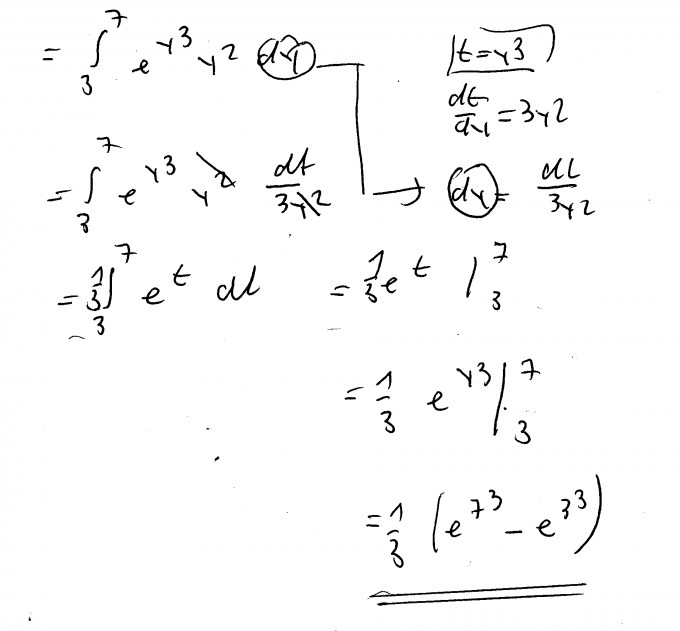 = ∫₃⁷ e^{y3} y2 dy
t = y3
dt/dy = 3y2
= ∫₃⁷ e^{y3} y2 dt/3y2 → dy = dt/3y2
= 1/3 ∫₃⁷ e^t dt = 1/3 e^t |₃⁷
= 1/3 e^{y3} |₃⁷
= 1/3 (e^{7^3} - e^{3^3})